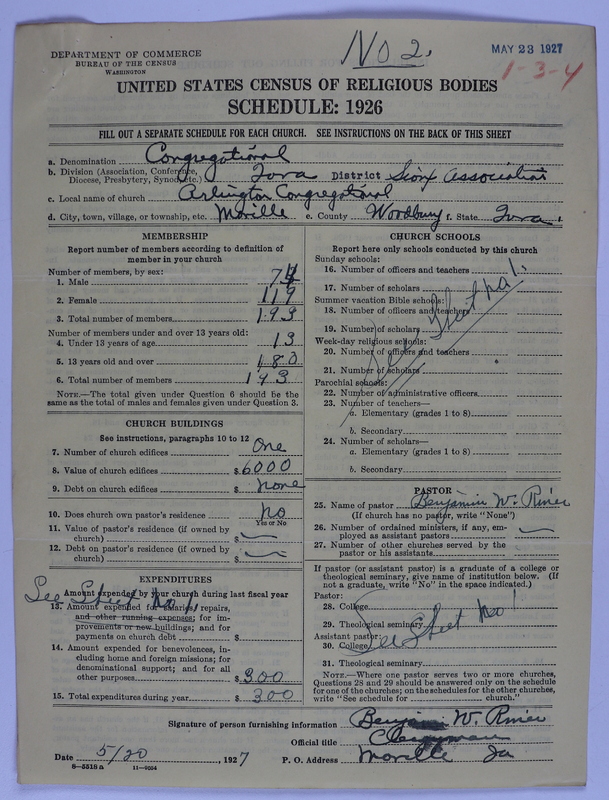 No 2.
MAY 23 1927
1-3-4
DEPARTMENT OF COMMERCE
BUREAU OF THE CENSUS
WASHINGTON
UNITED STATES CENSUS OF RELIGIOUS BODIES
SCHEDULE: 1926
FILL OUT A SEPARATE SCHEDULE FOR EACH CHURCH. SEE INSTRUCTIONS ON THE BACK OF THIS SHEET
a. Denomination Congregational
b. Division (Association, Conference, Diocese, Presbytery, Synod, etc.) Iowa District Sioux Association
c. Local name of church Arlington Congregational
d. City, town, village, or township, etc. Moville e. County Woodbury f. State Iowa
MEMBERSHIP
Report number of members according to definition of
member in your church
Number of members, by sex:
1. Male 74
2. Female 119
3. Total number of members 193
Number of members under and over 13 years old:
4. Under 13 years of age 13
5. 13 years old and over 180
6. Total number of members 193
NOTE.—The total given under Question 6 should be
same as the total of males and females given under Question 3.
CHURCH BUILDINGS
See instructions, paragraphs 10 to 12
7. Number of church edifices One
8. Value of church edifices $ 6000
9. Debt on church edifices $ none
10. Does church own pastor's residence? no
Yes or No
11. Value of pastor's residence (if owned by
church) $ —
12. Debt on pastor's residence (if owned by
church) $ —
EXPENDITURES
Amount expended by your church during last fiscal year
See Sheet No 1,
13. Amount expended for salaries, repairs,
and other running expenses; for im-
provements or new buildings; and for
payments on church debt $
14. Amount expended for benevolences, in-
cluding home and foreign missions; for
denominational support; and for all
other purposes $ 300
15. Total expenditures during year $ 300
CHURCH SCHOOLS
Report here only schools conducted by this church
Sunday schools:
16. Number of officers and teachers
17. Number of scholars
Summer vacation Bible schools:
18. Number of officers and teachers
19. Number of scholars
Week-day religious schools:
20. Number of officers and teachers
21. Number of scholars
Parochial schools:
22. Number of administrative officers
23. Number of teachers—
a. Elementary (grades 1 to 8)
b. Secondary
24. Number of scholars—
a. Elementary (grades 1 to 8)
b. Secondary
See Sheet No 1.
PASTOR
25. Name of pastor Benjamin W. Riner
(If church has no pastor, write "None")
26. Number of ordained ministers, if any, em-
ployed as assistant pastors —
27. Number of other churches served by the
pastor or his assistants
If pastor (or assistant pastor) is a graduate of a college or
theological seminary, give name of institution below. (If
not a graduate, write "No" in the space indicated.)
Pastor:
28. College
29. Theological seminary
Assistant pastor:
30. College
See Sheet No 1
31. Theological seminary
NOTE.—Where one pastor serves two or more churches,
Questions 28 and 29 should be answered only on the schedule
for one of the churches; on the schedules for the other churches,
write "See schedule for church."
Signature of person furnishing information Benjamin W. Riner
Official title Clergyman
Date 5/20, 1927 P. O. Address Moville Ia
8-5518a 11-9034